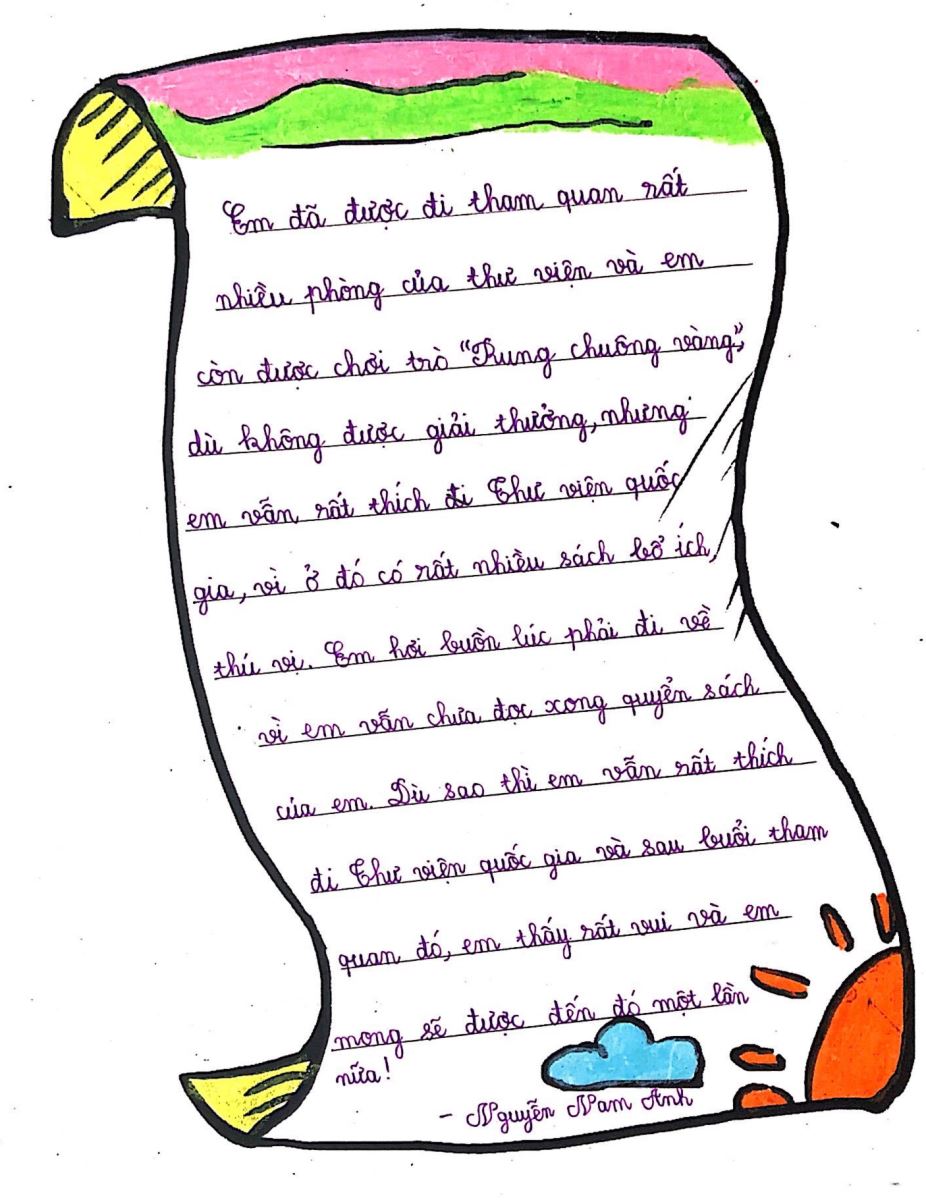 Em đã được đi tham quan rất
nhiều phòng của thư viện và em
còn được chơi trò "Rung chuông vàng",
dù không được giải thưởng, nhưng
em vẫn rất thích đi Thư viện quốc
gia, vì ở đó có rất nhiều sách bổ ích,
thú vị. Em hơi buồn lúc phải đi về
vì em vẫn chưa đọc xong quyển sách
của em. Dù sao thì em vẫn rất thích
đi Thư viện quốc gia và sau buổi tham
quan đó, em thấy rất vui và em
mong sẽ được đến đó một lần
nữa!
- Nguyễn Nam Anh